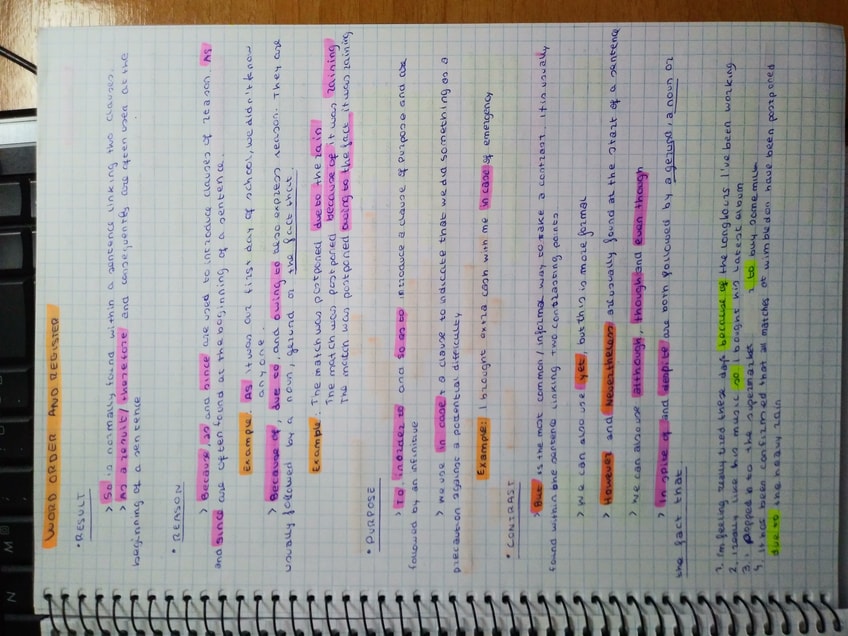 WORD ORDER AND REGISTER
• RESULT
> So is normally found within a sentence linking two clauses.
> As a result / therefore and consequently are often used at the
beginning of a sentence
• REASON
> Because, as and since are used to introduce clauses of reason. As
and since are often found at the beginning of a sentence.
Example: As it was our first day of school, we didn't know
anyone.
> Because of, due to, and owing to also express reason. They are
usually followed by a noun, gerund or the fact that.
Example: The match was postponed due to the rain
The match was postponed because of it was raining
The match was postponed owing to the fact it was raining
• PURPOSE
> To, in order to and so as to introduce a clause of purpose and are
followed by an infinitive
> We use in case + a clause to indicate that we did something as a
precaution against a potential difficulty
Example: I brought extra cash with me in case of emergency
• CONTRAST
> But is the most common / informal way to make a contrast. It is usually
found within one sentence linking two contrasting points.
> We can also use yet, but this is more formal
> However and Nevertheless are usually found at the start of a sentence
> We can also use although, though and even though
> In spite of and despite are both followed by a gerund, a noun or
the fact that
1. I'm feeling really tired these days because of the long hours I've been working
2. I really like his music so I bought his latest album
3. I popped to the supermarket to buy some milk
4. It has been confirmed that all matches at wimbledon have been postponed
due to the heavy rain
N
M